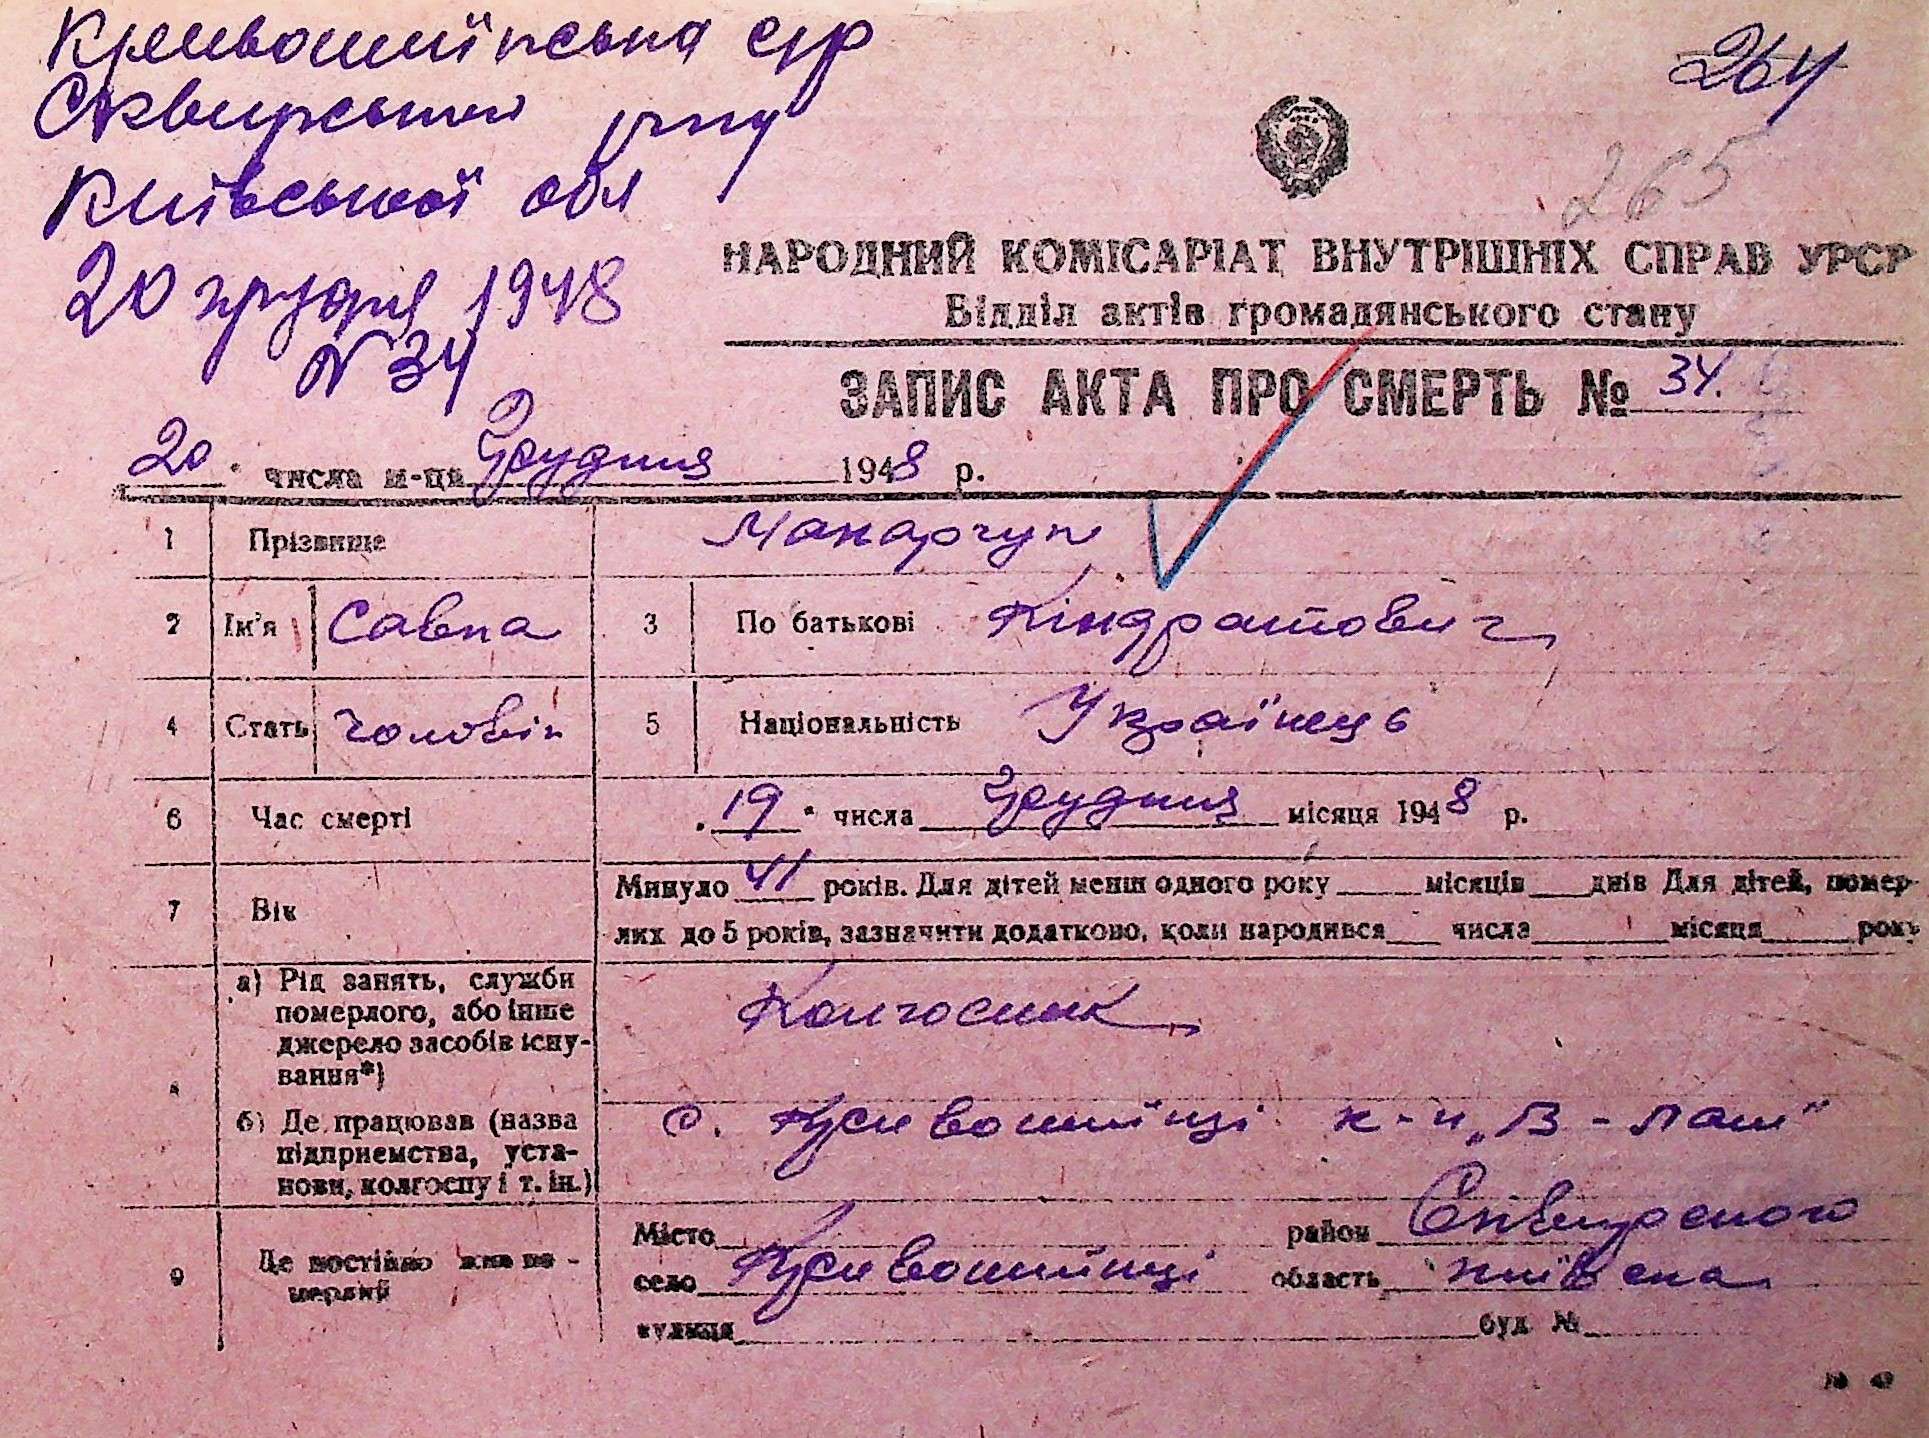 Кривошиїнська с/р
Сквирський р-ну
Київської обл
20 грудня 1948
N 34
264
265
НАРОДНИЙ КОМІСАРІАТ ВНУТРІШНІХ СПРАВ УРСР
Відділ актів громадянського стану
ЗАПИС АКТА ПРО СМЕРТЬ № 34.
20 " числа м-ця Грудня 1948 р.
1 Прізвище Макарчук
2 Ім'я Савка 3 По батькові Кіндратович
4 Стать чоловік 5 Національність Українець
6 Час смерті „19" числа Грудня місяця 1948 р.
7 Вік Минуло 41 років. Для дітей менш одного року ____ місяців ____ днів Для дітей, помер-
лих до 5 років, зазначити додатково, коли народився ____ числа ____ місяця ____ року
а) Рід занять, служби
померлого, або інше
джерело засобів існу-
вання*)
Колгосник
б) Де працював (назва
підприємства, уста-
нови, колгоспу і т. ін.)
с. Кривошиїнці к-п „В-
9 Де постійно жив по-
мерлий
Місто ____ район Сквирського
село Кривошиїнці область Київска
вулиця ____ буд №